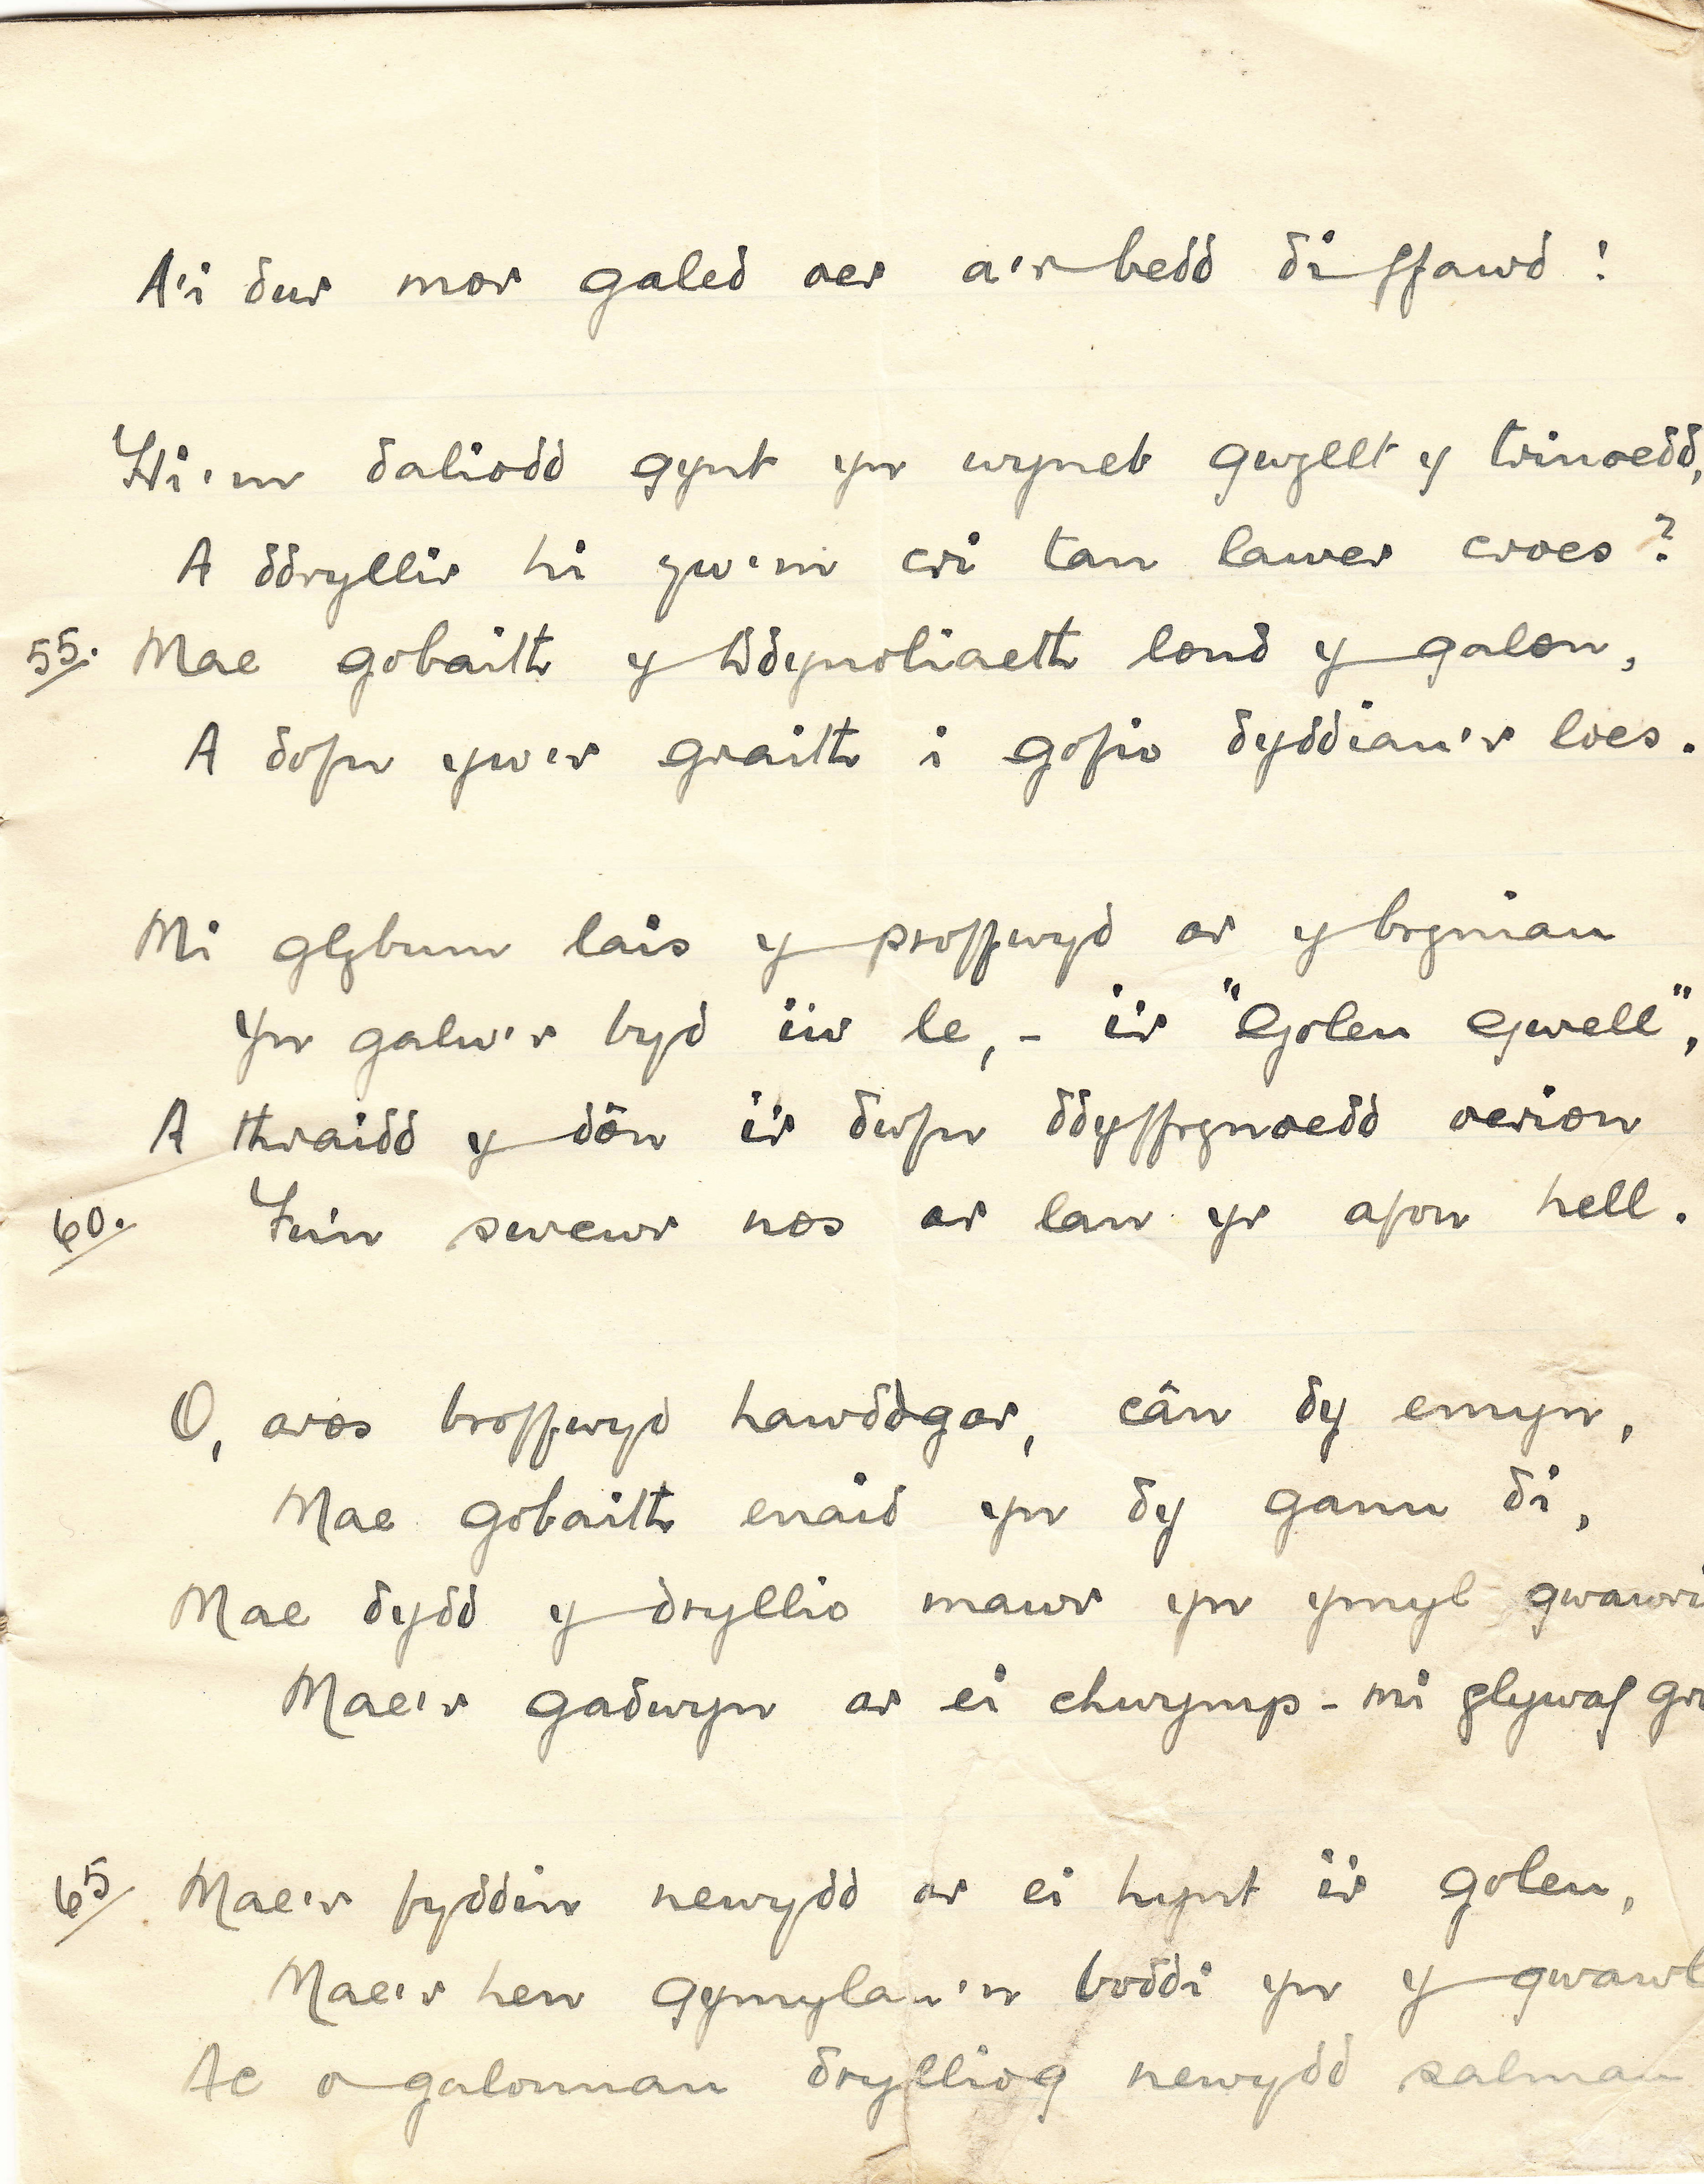 A'i dur mor galed oer a'r bedd di ffawd!
Hi'm daliodd gynt yn wyneb gwyllt y trinoedd,
A ddryllir hi yw'm cri tan lawer croes?
55. Mae gobaith y Ddynoliaeth lond y galon,
A dofn yw'r graith i gofio dyddiau'r loes.
Mi glybum lais y proffwyd ar y bryniau
Yn galw'r byd i'w le, - i'r "Goleu Gwell",
A thraidd y dôn i'r dwfn ddyffrynoedd oerion
60. Fu'n swcwr nos ar lan yr afon hell.
O, aros broffwyd hawddgar, cân dy emyn,
Mae gobaith enaid yn dy ganu di,
Mae dydd y dryllio mawr yn ymyl gwawri
Mae'r gadwyn ar ei chwymp - mi glywaf
65 Mae'r fyddin newydd ar ei hynt i'r goleu,
Mae'r hen gymylau'n boddi yn y gwawl
Ac o galonnau drylliog newydd salmau